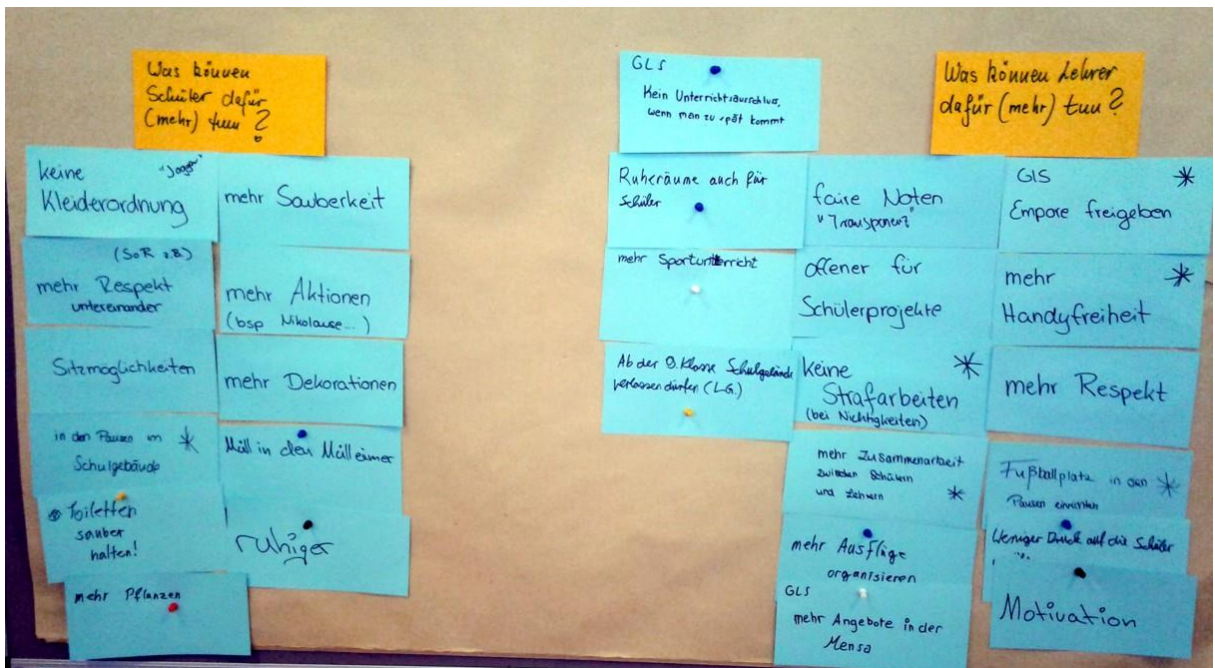 Was können
Schüler dafür
(mehr) tun?
keine "Joggi"
Kleiderordnung
(SoR z.B.)
mehr Respekt
untereinander
Sitzmöglichkeiten
in den Pausen im *
Schulgebäude
Toiletten
sauber
halten!
mehr Pflanzen
mehr Sauberkeit
mehr Aktionen
(bsp Nikolause...)
mehr Dekorationen
Müll in den Mülleimer
ruhiger
GLS
Kein Unterrichtsausschluss,
wenn man zu spät kommt
Ruheräume auch für
Schüler
mehr Sportunterricht
Ab der 9. Klasse Schulgelände
verlassen dürfen (LG.)
Was können Lehrer
dafür (mehr) tun?
faire Noten
"Transparenz"
offener für
Schülerprojekte
keine *
Strafarbeiten
(bei Nichtigkeiten)
mehr Zusammenarbeit
zwischen Schülern
und Lehrern *
mehr Ausflüge
organisieren
GLS
mehr Angebote in der
Mensa
GLS *
Empore freigeben
mehr *
Handyfreiheit
mehr Respekt
Fußballplatz in den *
Pausen einrichten
Weniger Druck auf die Schüler
Motivation